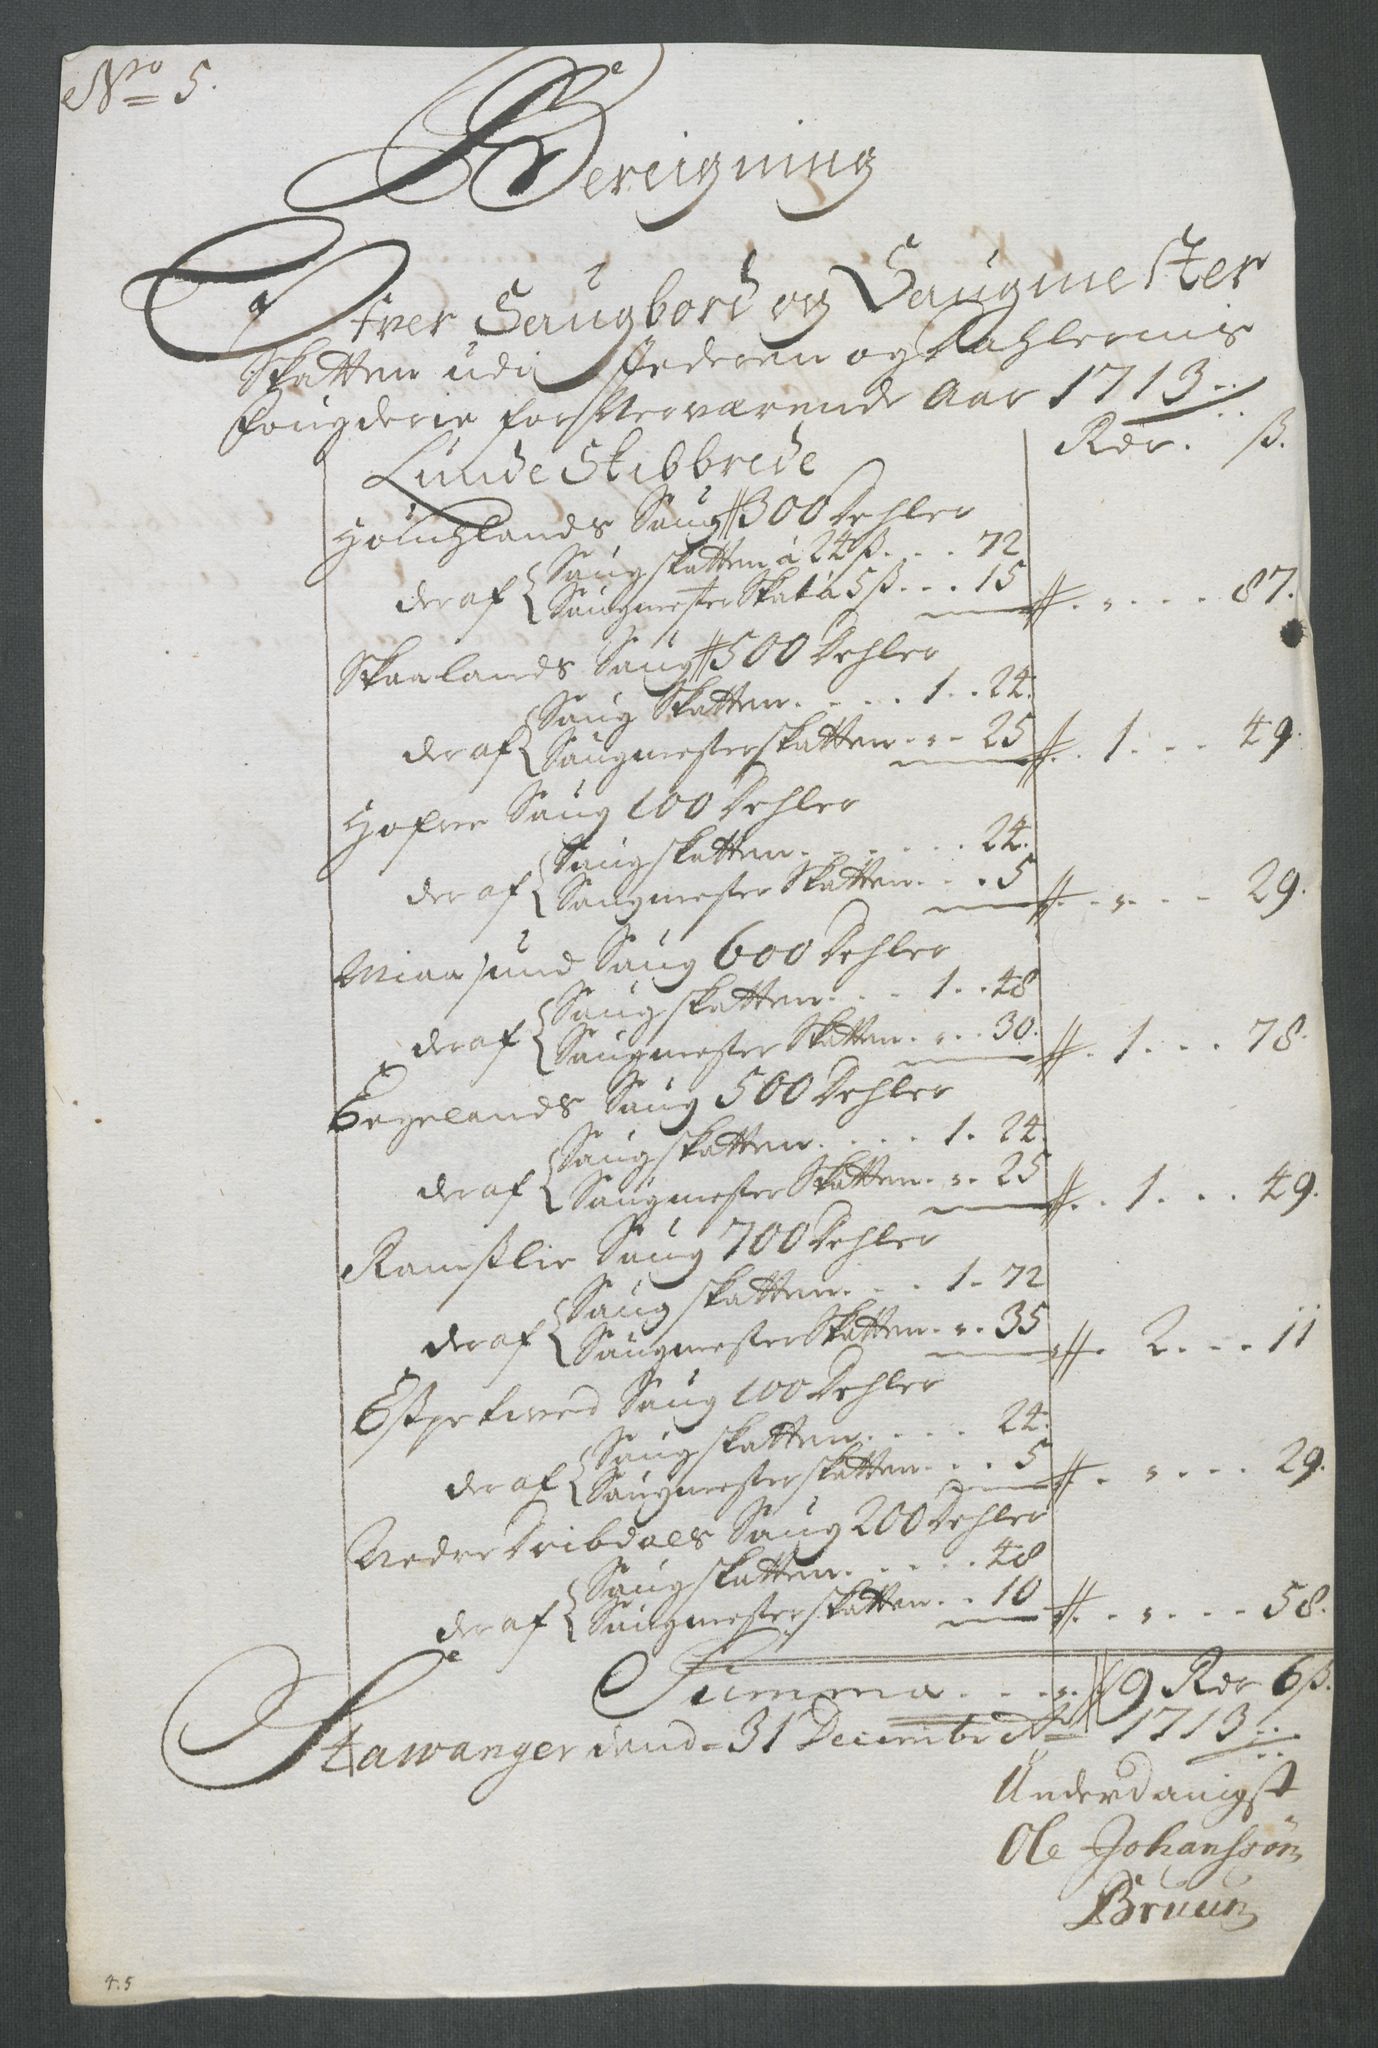 No 5.
Bereigning
Ofver Saugbord og Saugmester
Skatten udi Jederen og Dahlernis
Fougderie for Nerværende Aar 1713
Rdr. ß.
Lunde Skibbrede
Höüglands Saug 300 Dehler
deraf Saugskatten à 24 ß. . . . 72
Saugmester Skat à 5 ß. . . 15 . . . 87.
Skaalands Saug 500 Dehler
deraf Saug Skatten. . . . . 1. . 24.
Saugmesterskatten . . . 25 . . 1. . . 49.
Hofree Saug 100 Dehler
deraf Saugskatten. . . . . . 24.
Saugmester Skatten. . . 5 . . . 29.
Miaasund Saug 600 Dehler
deraf Saugskatten. . . . 1. . 48
Saugmester Skatten. . . 30. . . 1. . . 78.
Eegelands Saug 500 Dehler
deraf Saugskatten. . . . . 1. 24.
Saugmester Skatten. . . 25 . . 1. . . 49.
Ramslie Saug 700 Dehler
deraf Saugskatten. . . 1. 72
Saugmester Skatten. . . 35 . 2. . . 11
Saug 100 Dehler
deraf Saugskatten. . . . 24.
Saugmesterskatten. . . 5 . . . . 29.
Nedre Dribdals Saug 200 Dehler
deraf Saugskatten. . . . . . 48
Saugmesterskatten. . . 10 . . . . 58.
Summa. . . . 9 Rdr 6 ß.
Stawanger dend 31 Decembr Ao 1713
Underdanigst
Ole Johanssön
Bruun
4.5